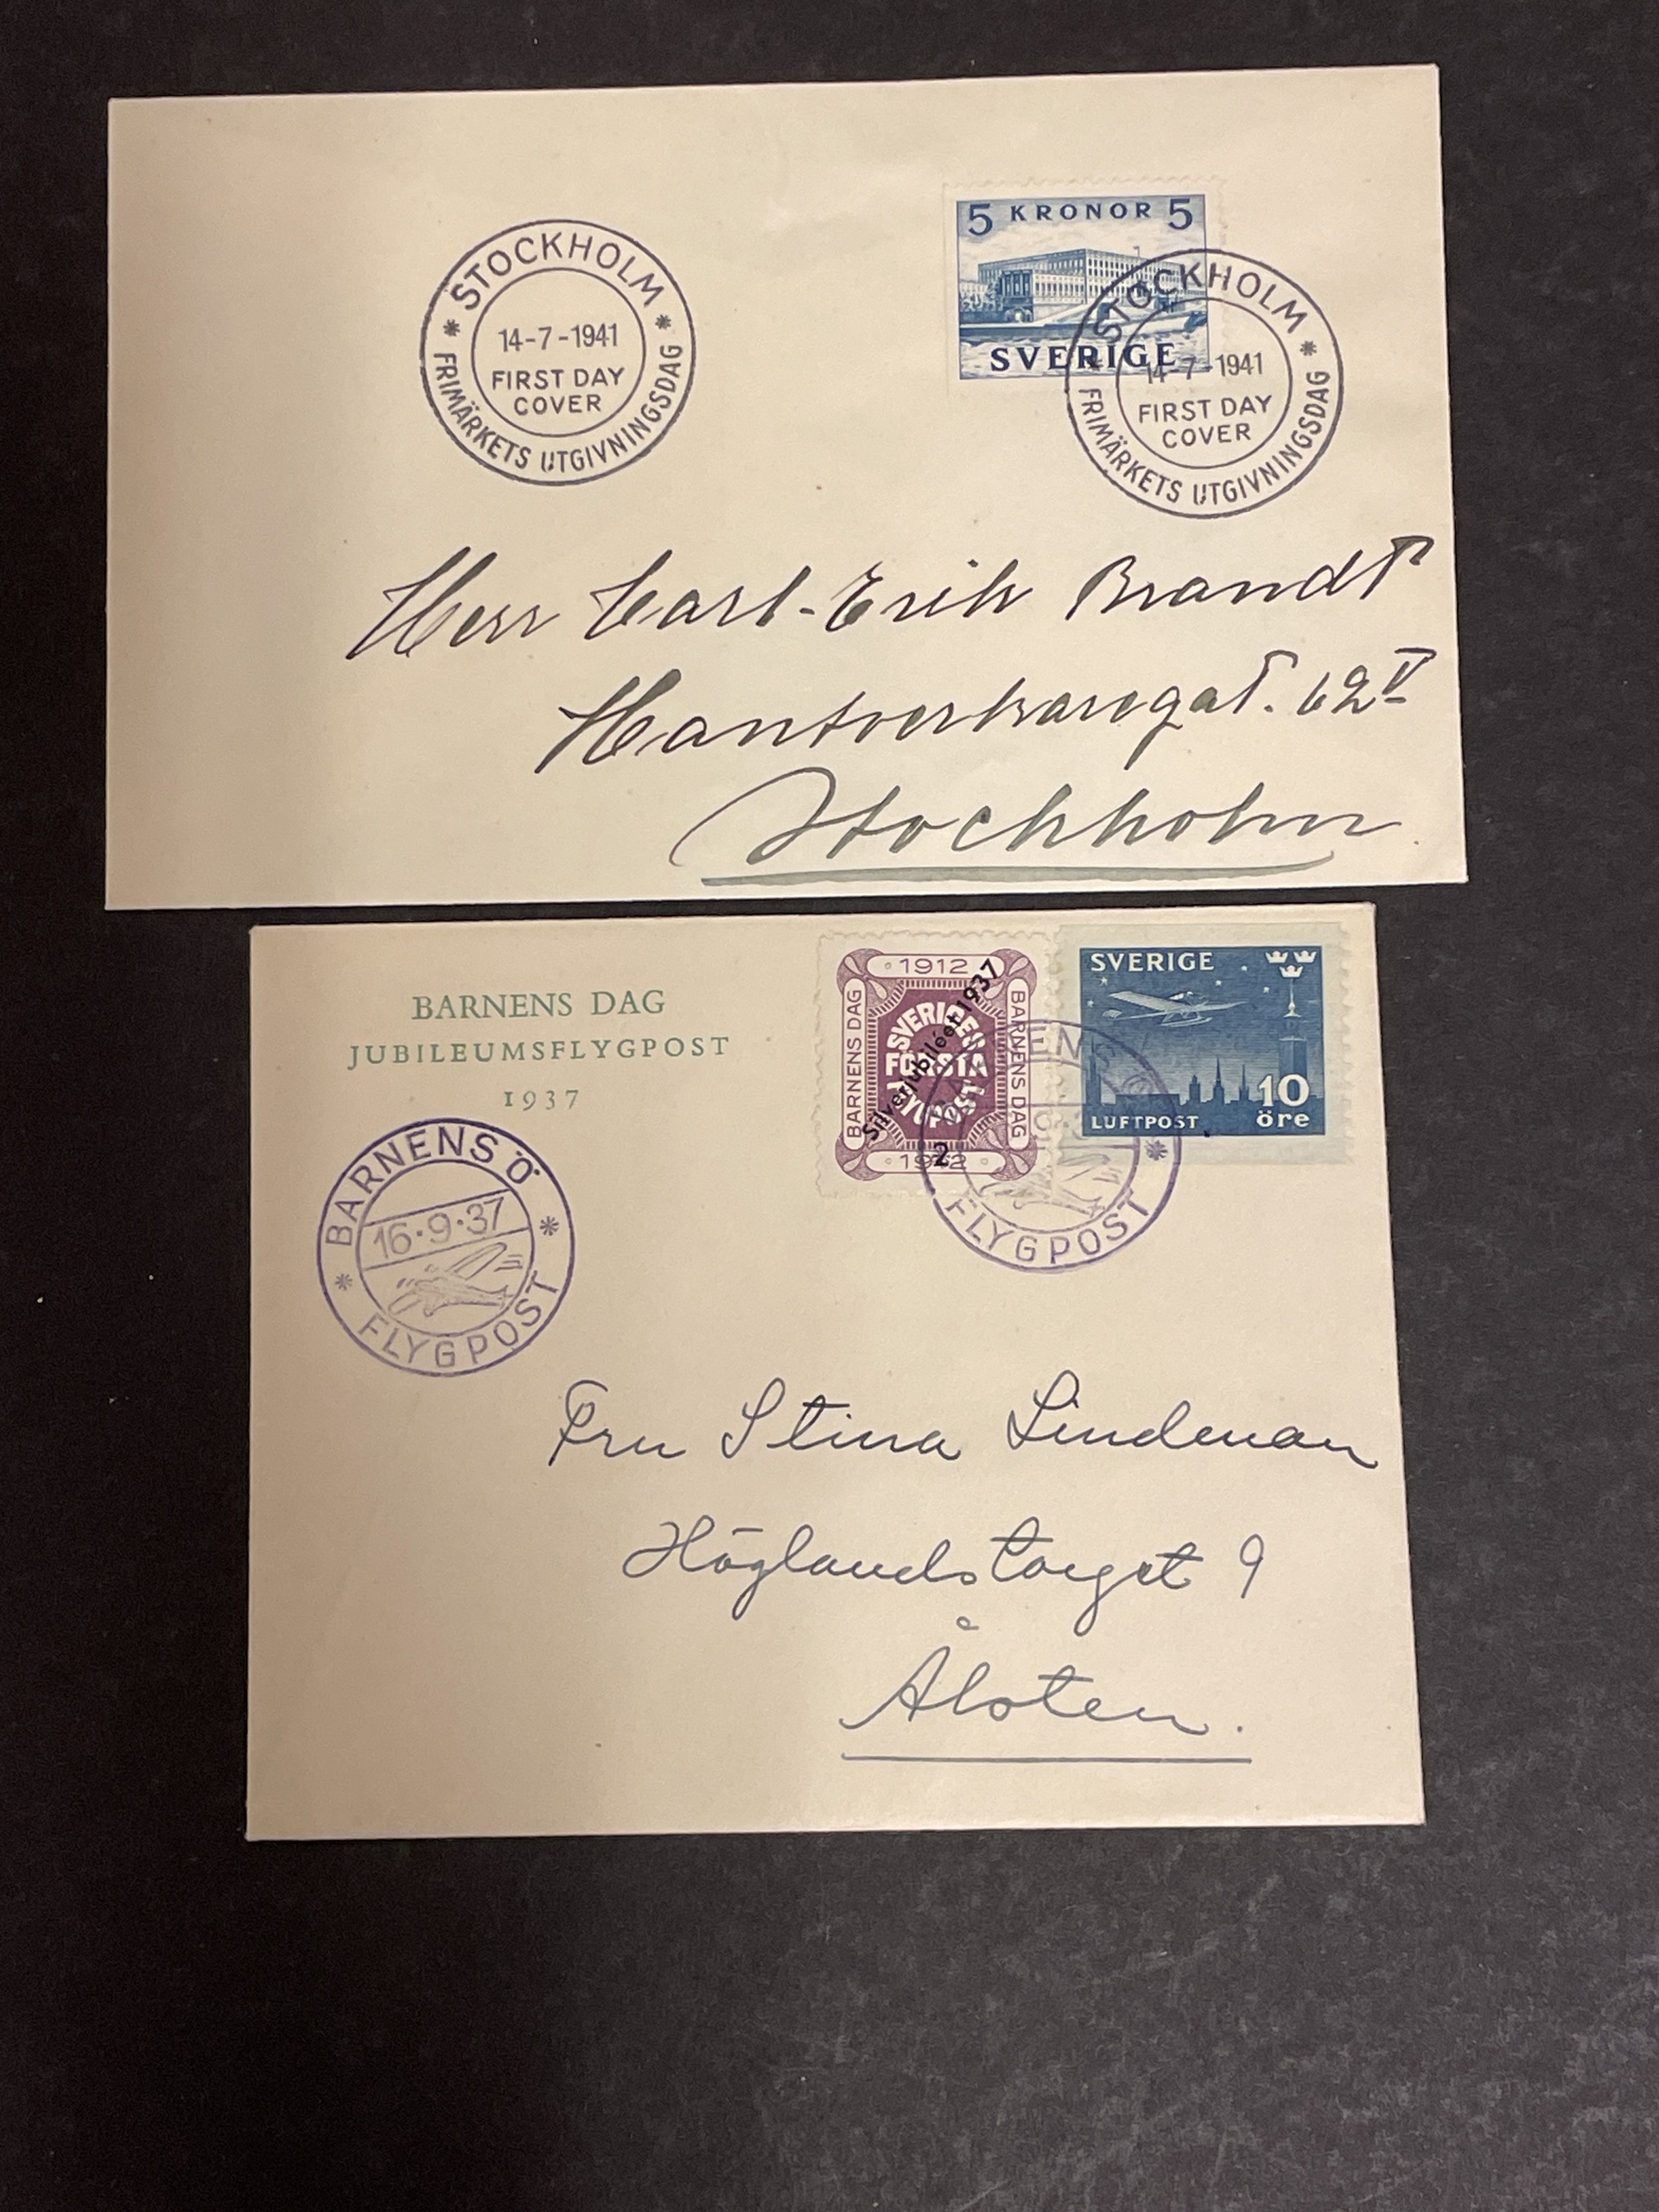 STOCKHOLM
14-7-1941
FIRST DAY
COVER
FRIMÄRKETS UTGIVNINGSDAG
5 KRONOR 5
SVERIGE
STOCKHOLM
14-7-1941
FIRST DAY
COVER
FRIMÄRKETS UTGIVNINGSDAG
Herr Carl-Erik Brandt
Hantverkaregat. 62 V
Stockholm
BARNENS DAG
JUBILEUMSFLYGPOST
1937
BARNENS Ö
16·9·37
FLYGPOST
1912
BARNENS DAG
SVERIGES
FÖRSTA
FLYGPOST
BARNENS DAG
Silverjubileet 1937
2
1912
SVERIGE
10
LUFTPOST öre
BARNENS Ö
FLYGPOST
Fru Stina Lindman
Höglandstorget 9
Ålsten.